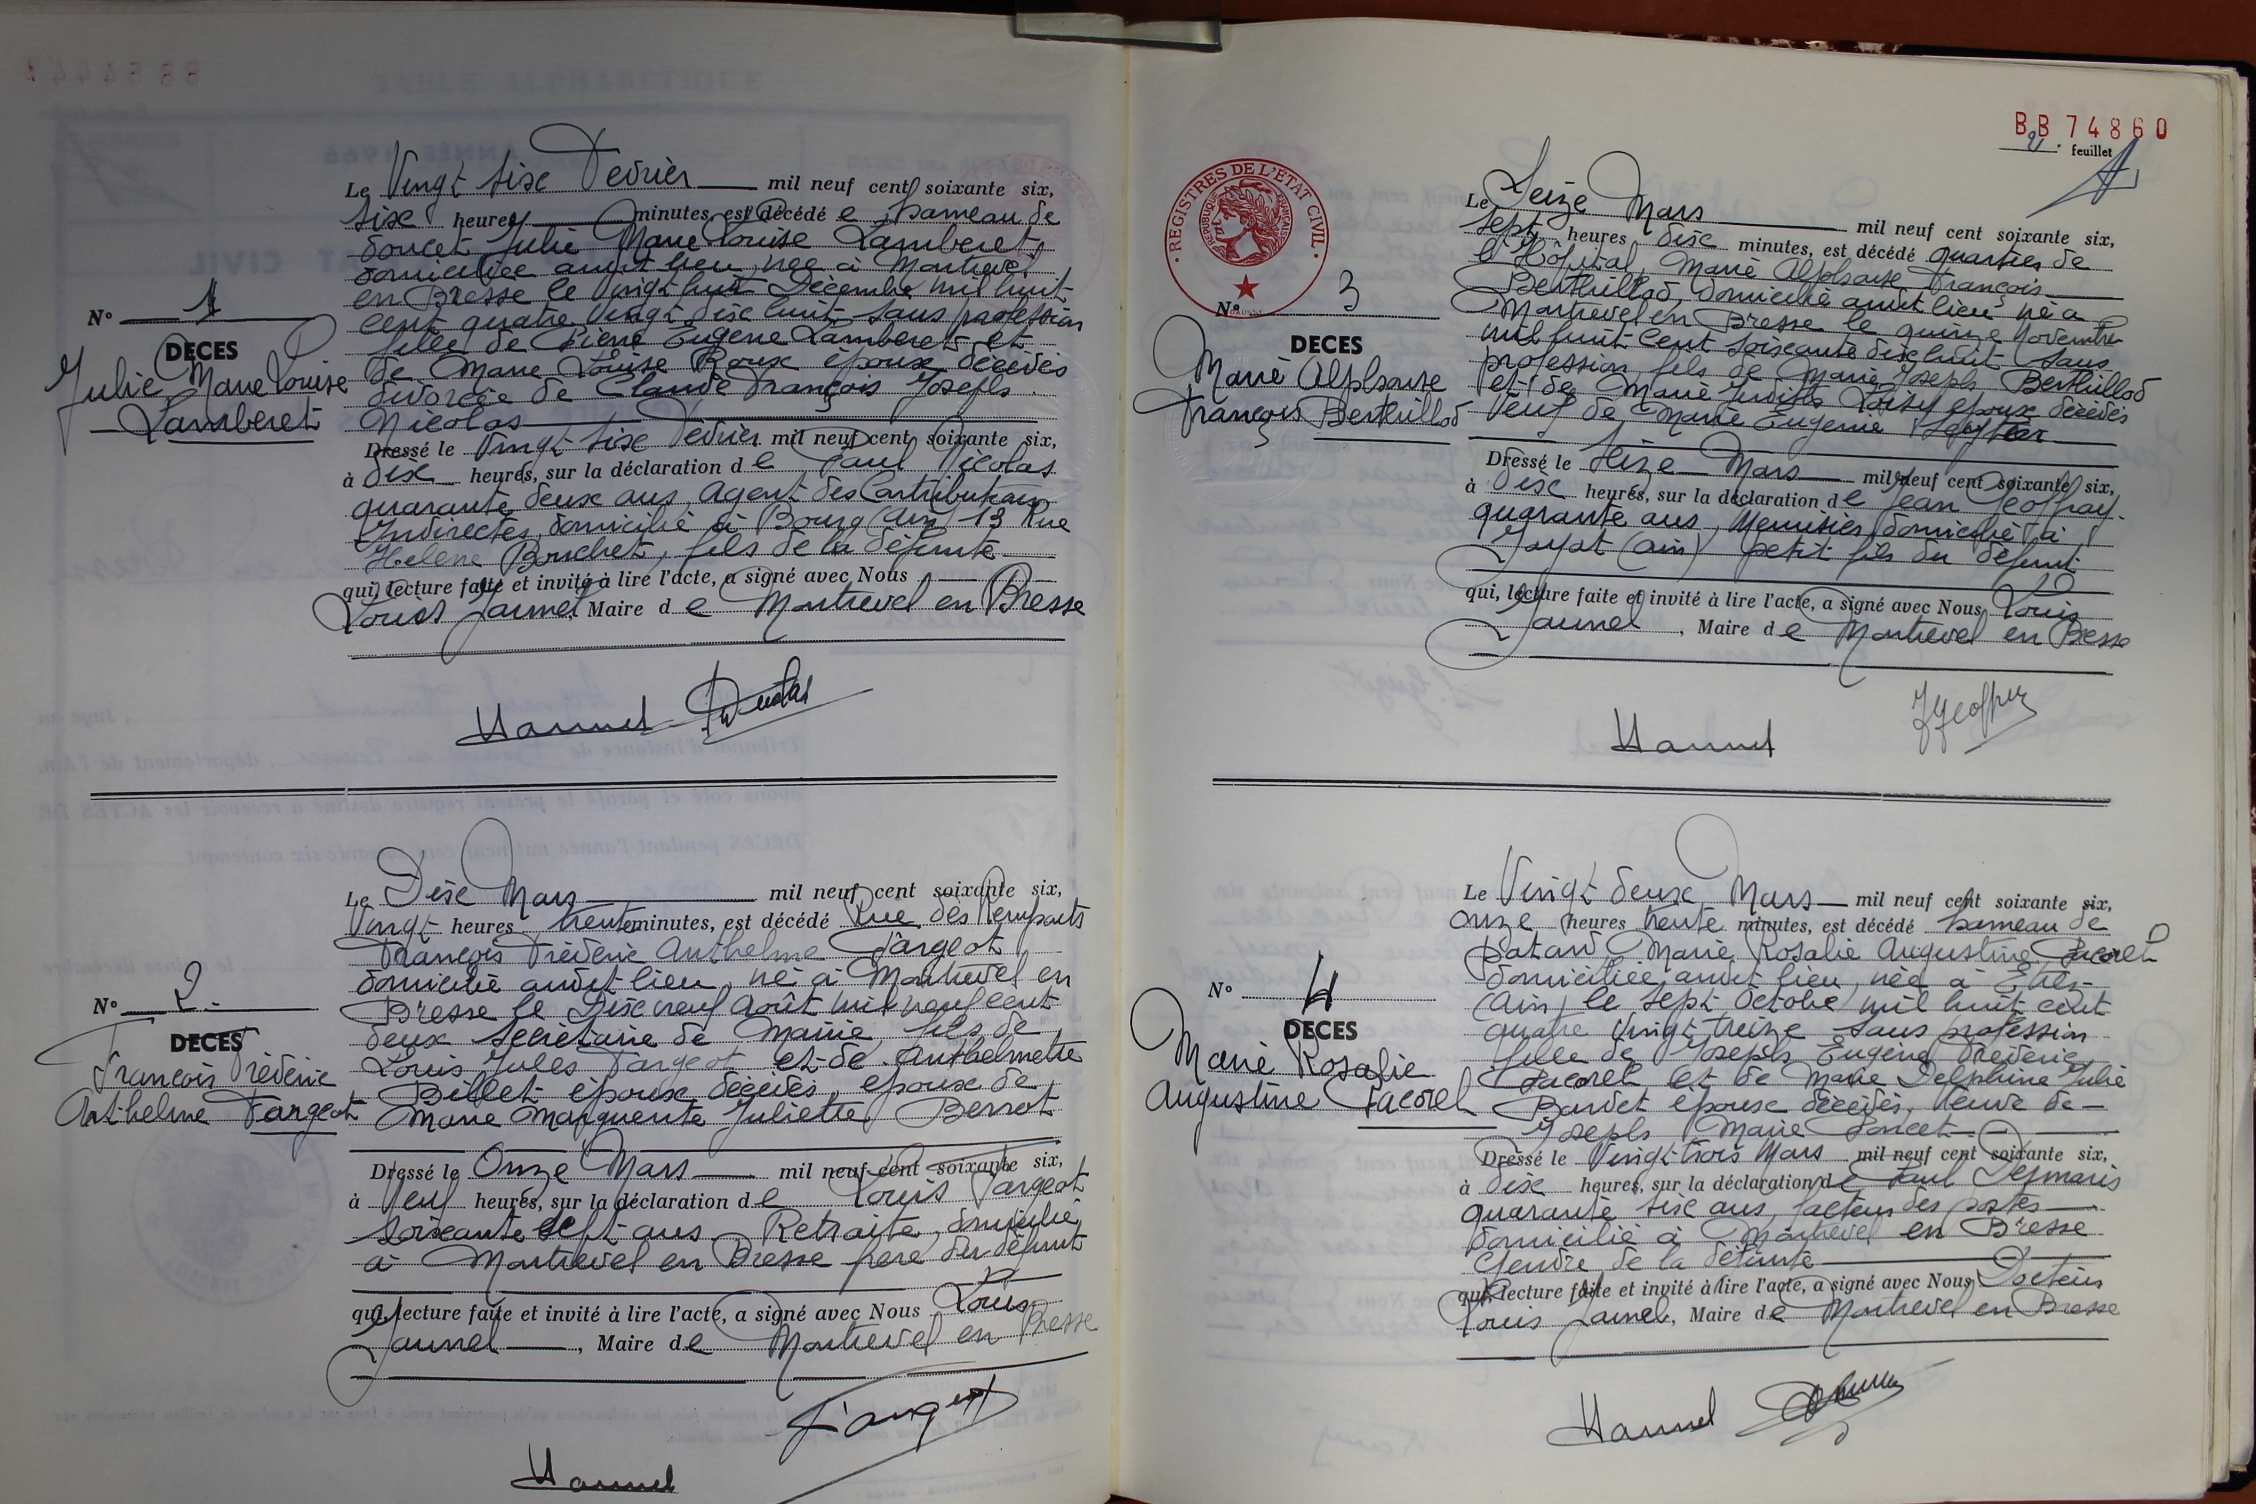 Le Vingt six Fevrier mil neuf cent soixante six,
six heures minutes, est décédé e hameau de
doucet Julie Marie Louise Lamberet
domiciliée audit lieu, née à Montrevel
en Bresse le Vingt huit Décembre mil huit
cent quatre vingt dix huit sans profession
fille de Pierre Eugène Lamberet et
de Marie Louise Roux époux décédés
divorcée de Claude François Joseph
Nicolas
N° 1
DECES
Julie Marie Louise
Lamberet
Dressé le Vingt six Fevrier mil neuf cent soixante six,
à dix heures, sur la déclaration de Paul Nicolas
quarante deux ans, Agent des Contributions
Indirectes, domicilié à Bourg (Ain) 13 Rue
Hélène Bouchet, fils de la défunte
qui, lecture faite et invité à lire l'acte, a signé avec Nous
Louis Jaunel Maire de Montrevel en Bresse
Le Dix Mars mil neuf cent soixante six,
Vingt heures trente minutes, est décédé Rue des Remparts
François Fréderic Anthelme Fargeot
domicilié audit lieu, né à Montrevel en
Bresse le Dix neuf Août mil neuf cent
deux Secrétaire de Mairie fils de
Louis Jules Fargeot et de Anthelmette
Billet époux décédés époux de
Marie Marguerite Juliette Berrot
N° 2
DECES
François Fréderic
Anthelme Fargeot
Dressé le Onze Mars mil neuf cent soixante six,
à Neuf heures, sur la déclaration de Louis Fargeot
soixante sept ans Retraité, domicilié
à Montrevel en Bresse frère du défunt
qui, lecture faite et invité à lire l'acte, a signé avec Nous Louis
Jaunel, Maire de Montrevel en Bresse
Fargeot
BB 74860
2 feuillet
REGISTRES DE L'ÉTAT CIVIL
Le Seize Mars mil neuf cent soixante six,
sept heures dix minutes, est décédé quartier de
l'Hôpital, Marie Alphonse François
Berthillod, domicilié audit lieu né à
Montrevel en Bresse le quinze Novembre
mil huit cent soixante dix huit sans
profession, fils de Marie Joseph Berthillod
et de Marie Judith Loisy époux décédés
Veuf de Marie Eugenie
N° 3
DECES
Marie Alphonse
François Berthillod
Dressé le Seize Mars mil neuf cent soixante six,
à dix heures, sur la déclaration de Jean Geoffray
quarante ans, Menuisier, domicilié à
Jayat (Ain) petit fils du défunt
qui, lecture faite et invité à lire l'acte, a signé avec Nous Louis
Jaunel, Maire de Montrevel en Bresse
Le Vingt deux Mars mil neuf cent soixante six,
onze heures trente minutes, est décédé hameau de
Marie Rosalie Augustine Pacoret
domiciliée audit lieu, née à
(Ain) le sept Octobre mil huit cent
quatre Vingt treize sans profession
fille de Joseph Eugène Fréderic
Pacoret et de Marie Delphine Julie
Bardet époux décédés, Veuve de
Joseph Marie Poncet
N° 4
DECES
Marie Rosalie
Augustine Pacoret
Dressé le Vingt trois Mars mil neuf cent soixante six,
à dix heures, sur la déclaration de Paul Desmaris
quarante six ans, facteur des postes
domicilié à Montrevel en Bresse
Gendre de la défunte
qui, lecture faite et invité à lire l'acte, a signé avec Nous Docteur
Louis Jaunel, Maire de Montrevel en Bresse